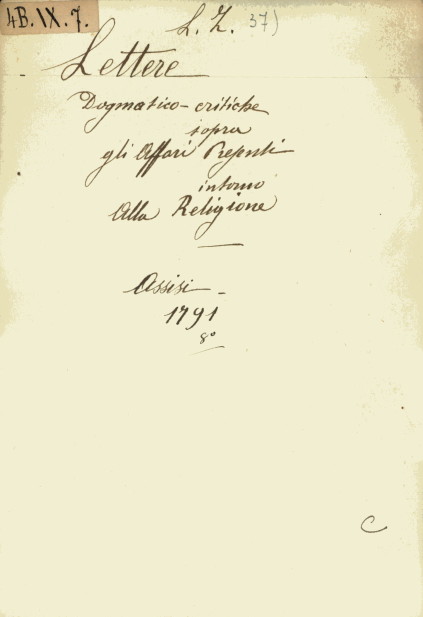 4B. IX. 7.
L. Z. 37)
Lettere
Dogmatico-critiche
sopra
gli Affari Presenti
intorno
Alla Religione
Assisi
1791
8°
C